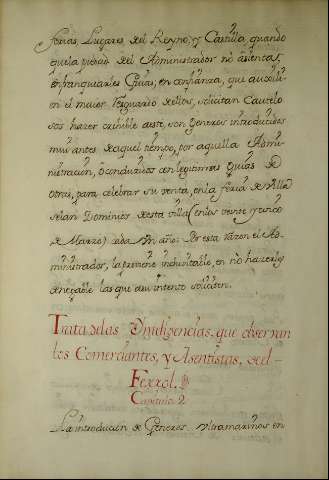 ferias, Lugares del Reyno, y Castilla quando
que la piedad del Administrador no asientas,
en franquiarles Guias, en confianza, que
en el mejor de ellos, solicitan Cautelo
sos hazer creible a este, son Generos introducidos
mui antes de aquel tiempo, por aquella Admi
nistracion, ò conduzidos con legitimas guias de
otras, para celebrar su venta, en la feria de Villa
de San Domingo de esta villa (en los veinte y cinco
de Marzo) cada un año: Por esta razon el Ad-
ministrador, la previene en no hazerles
las que de su intento soliciten.
Trata de las Ynteligencias, que observan
los Comerciantes, y Asentistas, del-
Ferrol.
Capitulo 2
La introducion de Generos Ultramarinos en